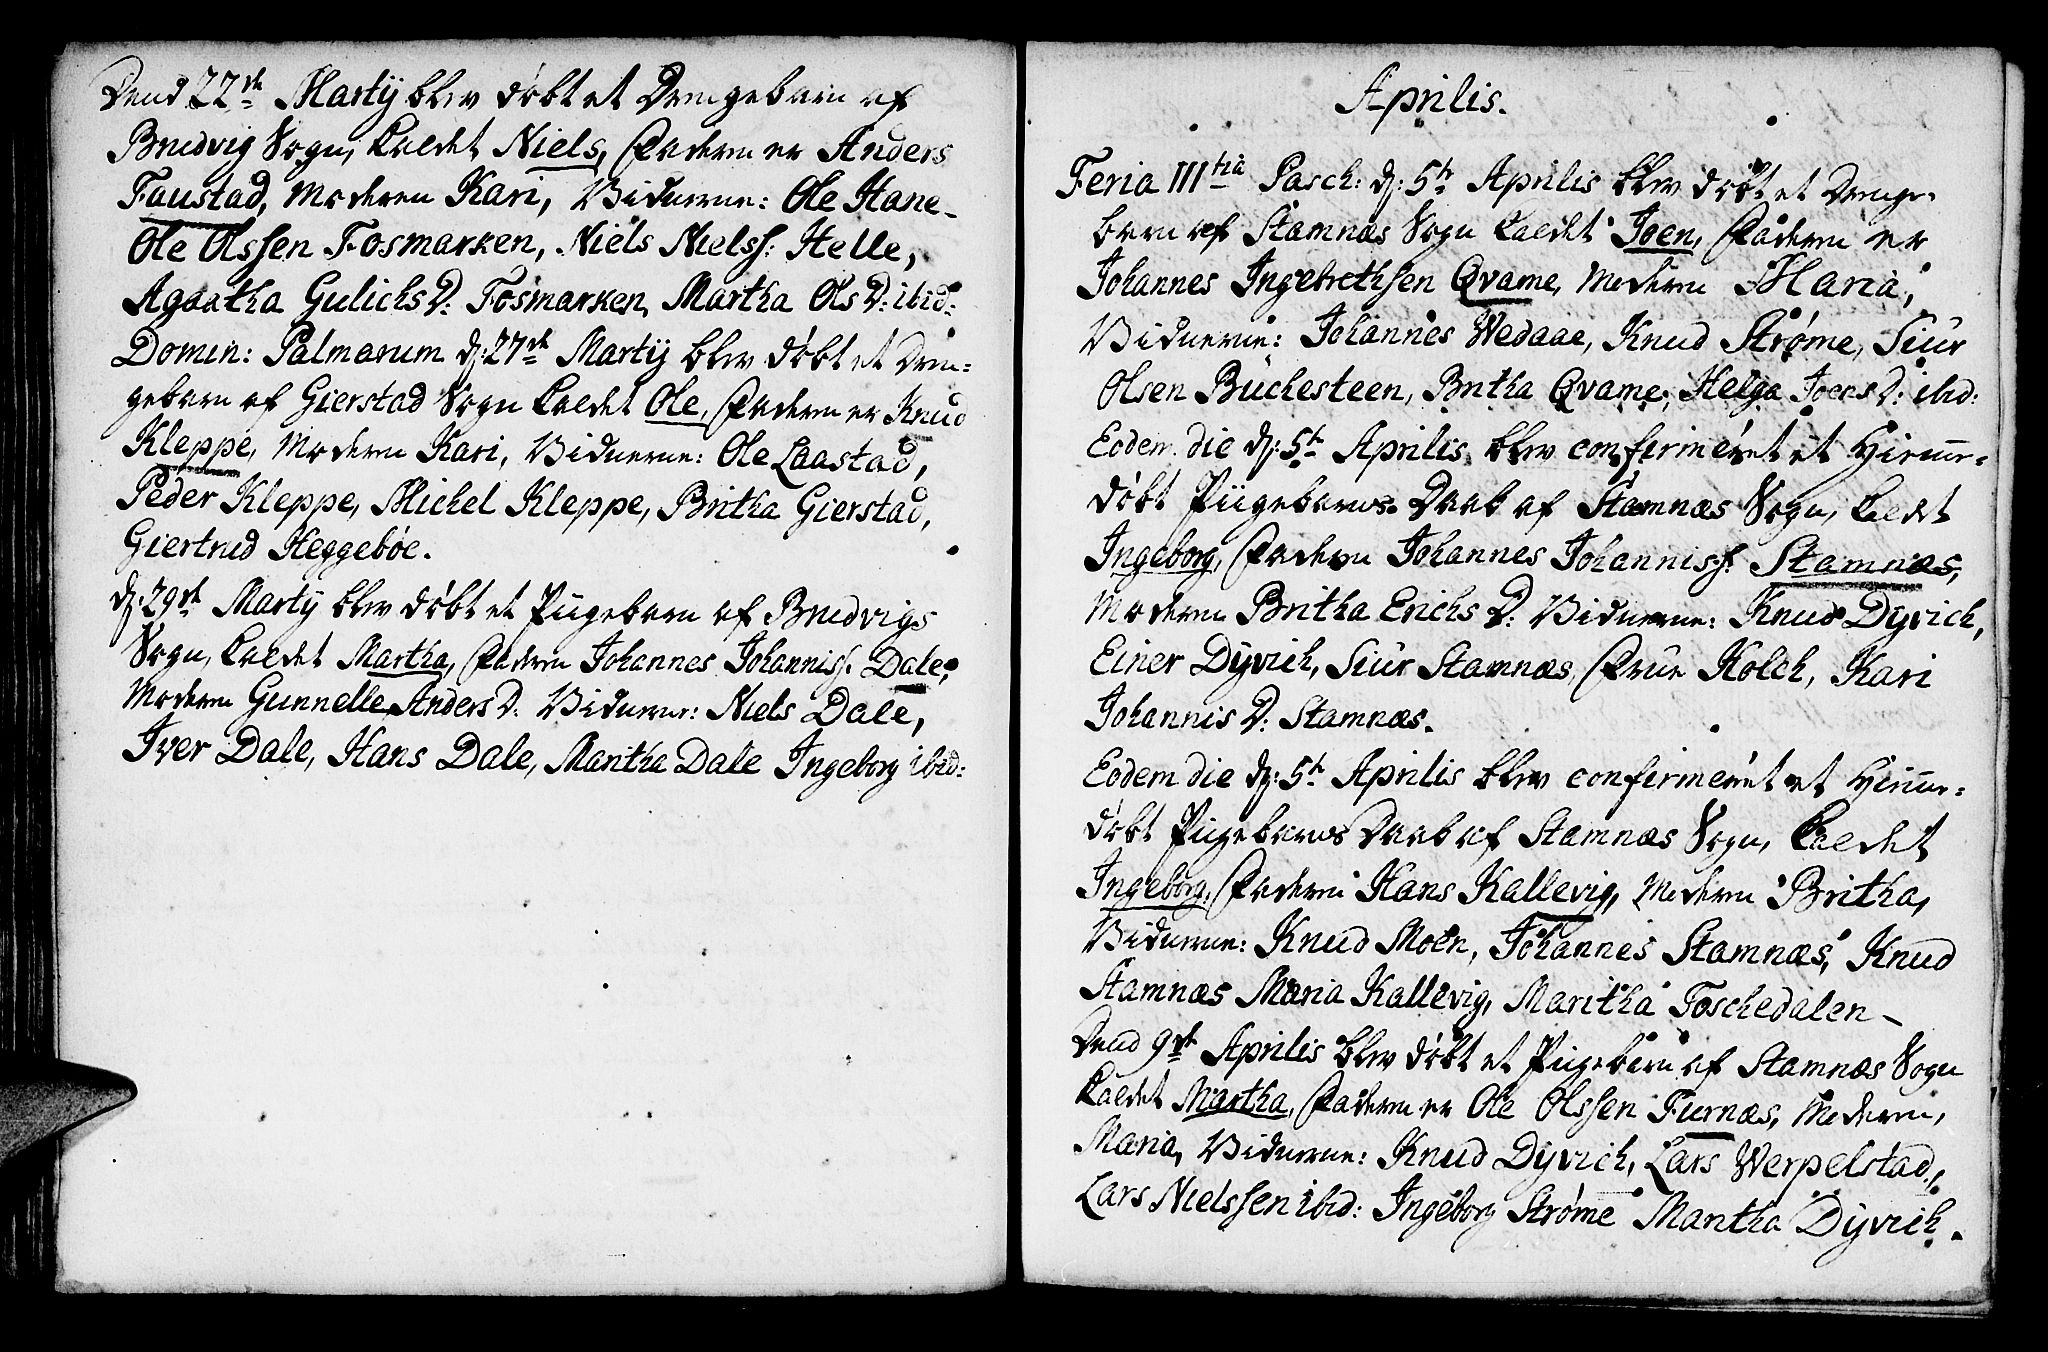 Dend 22de Martij blev døbt et Drengebarn af
Bruvig Sogn, Kaldet Niels, Faderen er Anders
Faustad, Moderen Kari, Vidnerne: Ole Hane-
Ole Olssen Fosmarken, Niels Nielss: Helle,
Agaatha GulichsD: Fosmarken, Martha OlsD: ibid:
Domin: Palmarum d: 27de Martij blev døbt et Dren=
gebarn af Gierstad Sogn Kaldet Ole, Faderen er Knud
Kleppe, Moderen Kari, Vidnerne: Ole Laastad,
Peder Kleppe, Michel Kleppe, Britha Gierstad,
Giertrud Heggebøe.
d: 29de Martij blev døbt et Pigebarn af Brudvigs
Sogn, Kaldet Martha, Faderen Johannes Johanniss: Dale,
Moderen Gunnelle Anders D: Vidnerne: Niels Dale,
Iver Dale, Hans Dale, Maritha Dale Ingeborg ibid:
Aprilis.
Feria IIItia Pasch: d: 5te Aprilis blev døbt et Drenge-
barn af Stamnæs Sogn Kaldet Joen, Faderen er
Johannes Ingebrethsen Qvame, Moderen Maria,
Vidnerne: Johannes Wedaae, Knud Strøme, Siur
Olsen Buchesteen, Britha Qvame, Helga Joens D: ibid:
Eodem die d: 5te Aprilis blev confirmeret et Hiemme=
døbt Pigebarns Daab af Stamnæs Sogn, Kaldet
Ingeborg, Faderen Johannes Johanniss: Stamnæs,
Moderen Britha Erichs D: Vidnerne: Knud Dyvich,
Einer Dyvich, Siur Stamnæs, Frue Kolch, Kari
Johannis D: Stamnæs.
Eodem die d: 5te Aprilis blev confirmeret et Hiemme=
døbt Pigebarns Daab af Stamnæs Sogn, Kaldet
Ingeborg, Faderen Hans Kallevig, Moderen Britha,
Vidnerne: Knud Moen, Johannes Stamnæs, Knud
Stamnæs Maria Kallevig, Maritha Foschedalen-
Dend 9de Aprilis blev døbt et Pigebarn af Stamnæs Sogn
Kaldet Martha, Faderen er Ole Olssen Furnæs, Moderen,
Maria, Vidnerne: Knud Dyvich, Lars Werpelstad,
Lars Nielssen ibid: Ingeborg Strøme Mantha Dyvich.